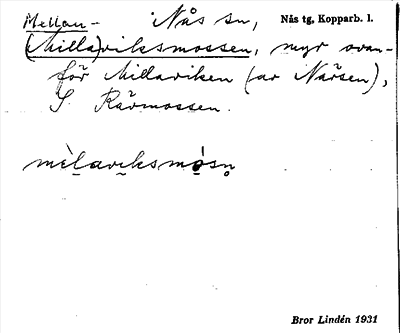 Mellan- Nås sn, Nås tg, Kopparb. l.
(Milla)viksmossen, myr ovan-
för Millaviken (av Närsen),
S. Rävmossen.
mèḷavi̯ksmó̤sn̥
Bror Lindén 1931